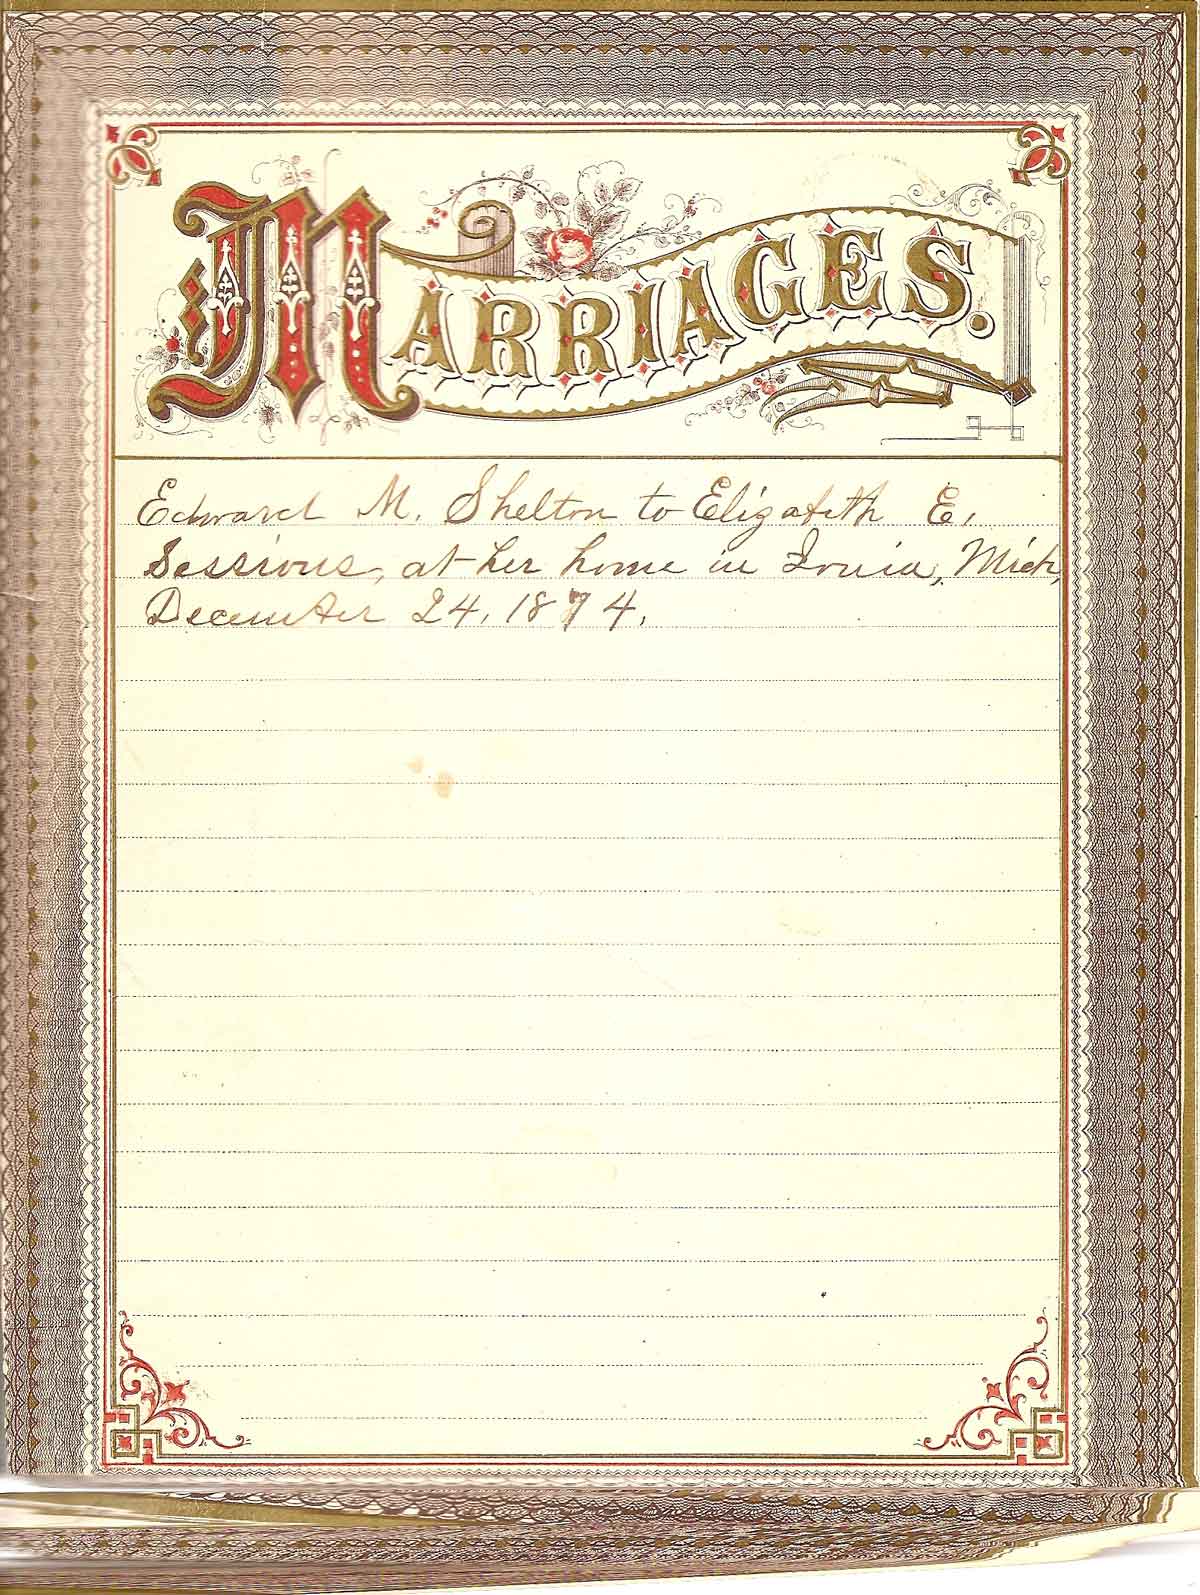 MARRIAGES.
Edward M. Shelton to Elizabeth E.
Sessions, at her home in Ionia, Mich,
December 24, 1874.